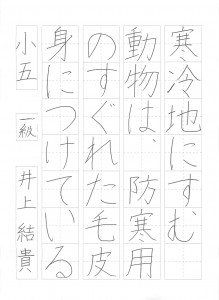 寒冷地にすむ
動物は、防寒用
のすぐれた毛皮
身につけている
小五 一級 井上結貴